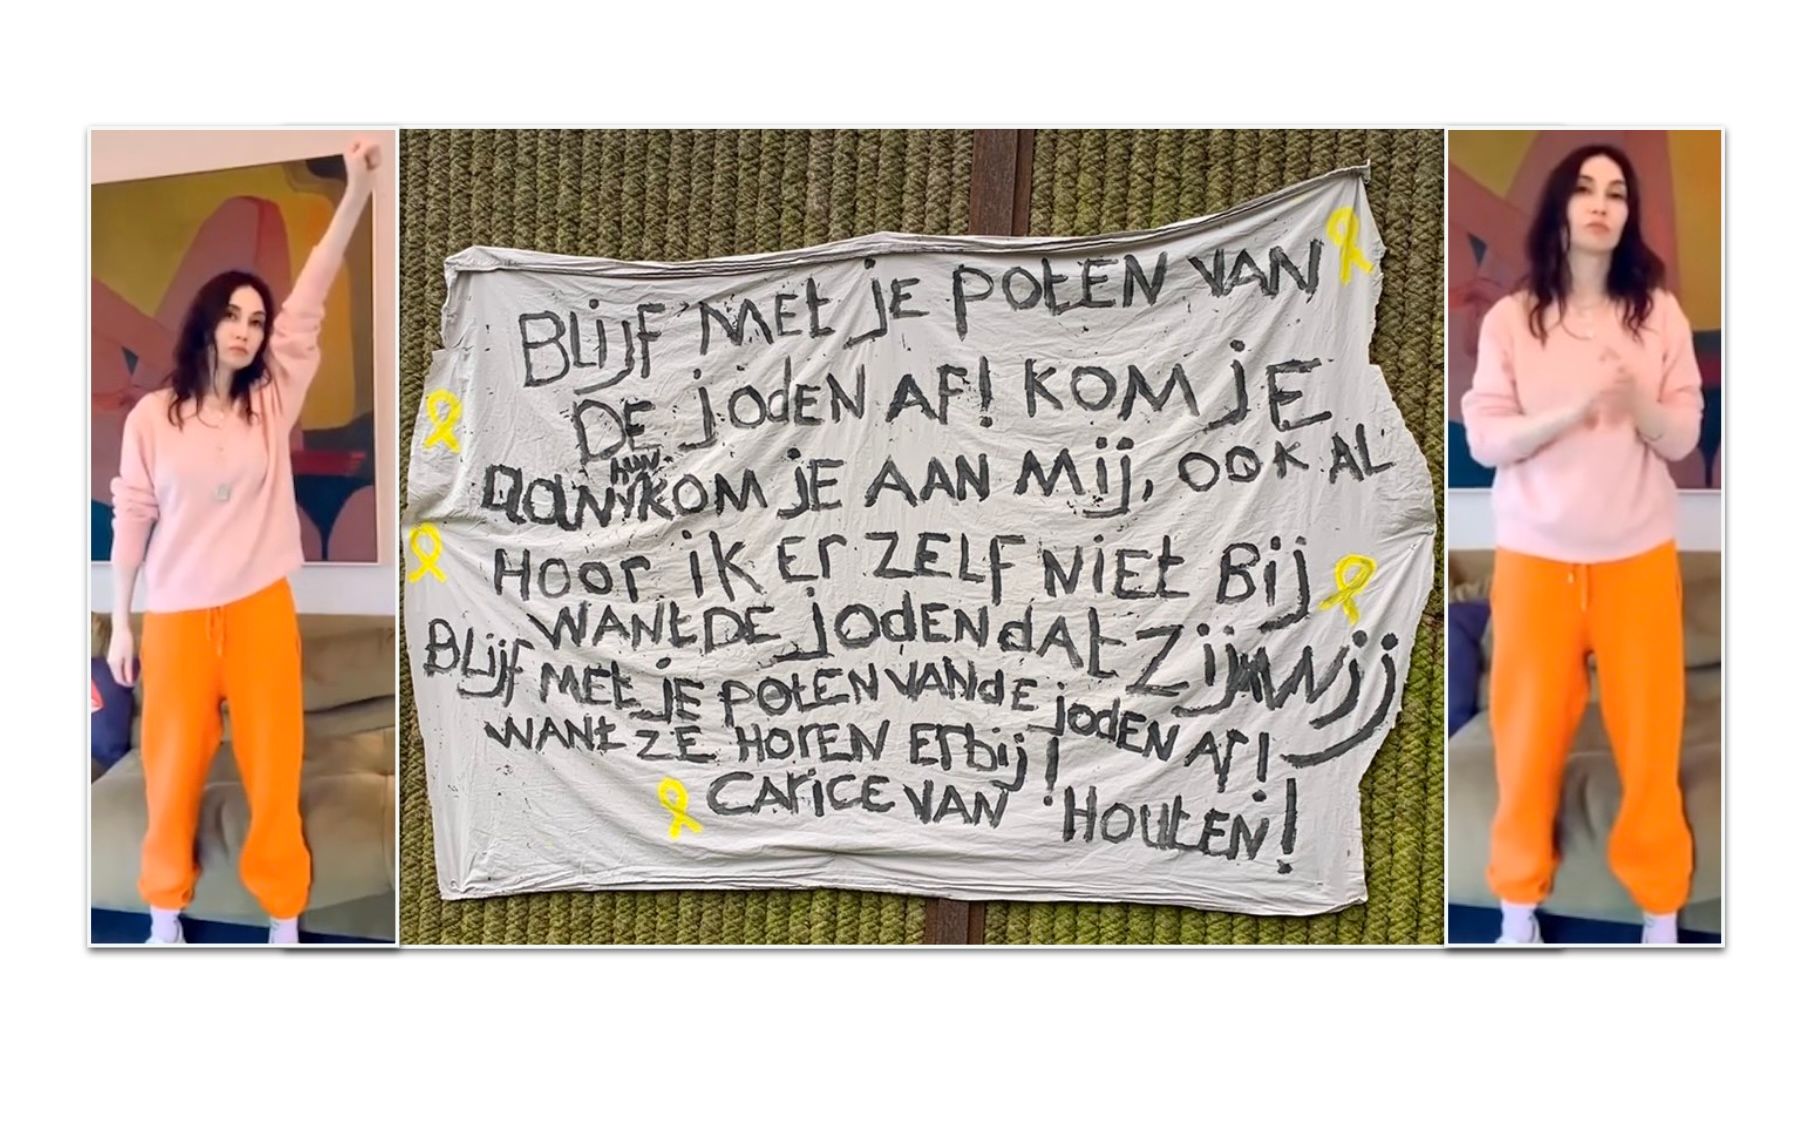 Blijf MEt jE POtEN VAN
DE jodEN AF! KOM jE
aan HUN KOM jE AAN Mij, OOK AL
HOOr iK Er ZELF NiEt Bij
WANt DE jodEN dAt Zijn Wij
Blijf MEt jE POtEN VAN dE jodEN AF!
WANt ZE HOrEN Erbij!
CAriCE VAN HOUtEN!